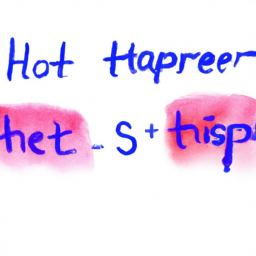 Hot Hapreer
het - S + hispi